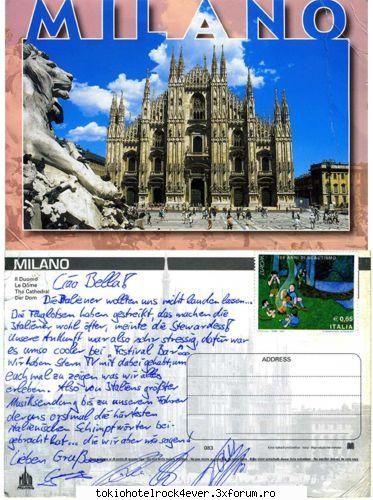 MILANO
MILANO
Il Duomo
Le Dôme
The Cathedral
Der Dom
Ciao Bella!
Die Italiener wollten uns nicht landen lassen...
Die Fluglotsen haben gestreikt, das machen die
Italiener wohl öfter, meinte die Stewardess!
Unsere Ankunft war also sehr stressig, dafür war
es umso cooler bei „Festival Bar“
Wir haben Stern TV mit dabei gehabt, um
euch mal zu zeigen was wir alles
erleben. Also von Italiens größter
Musiksendung bis zu unserem Fahrer
der uns erstmal die härtesten
italienischen Schimpfwörter bei-
gebracht hat... die wir aber
Lieben Gruß
EUROPA
100 ANNI DI SCAUTISMO
€ 0,65
ITALIA
ADDRESS
083
tokiohotelrock4ever.3xforum.ro